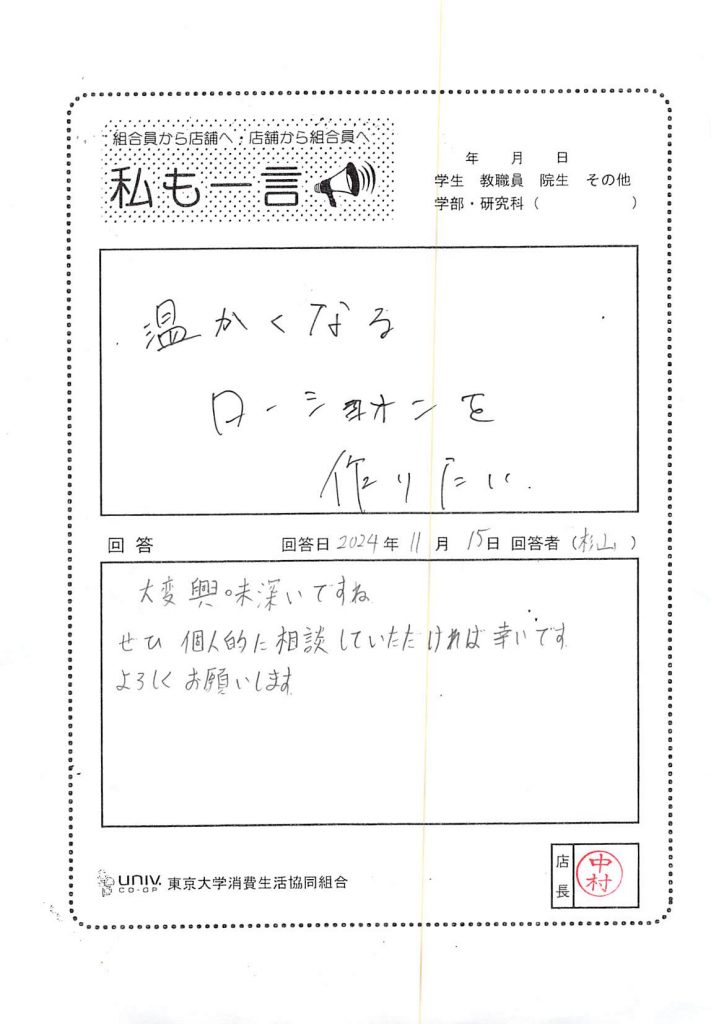 組合員から店舗へ・店舗から組合員へ
私も一言
年 月 日
学生 教職員 院生 その他
学部・研究科( )
温かくなる
ローションを
作りたい.
回答 回答日 2024年 11月 15日 回答者(杉山)
大変興味深いですね
ぜひ 個人的に相談していただければ幸いです
よろしくお願いします
UNIV. CO-OP 東京大学消費生活協同組合
店長
中村